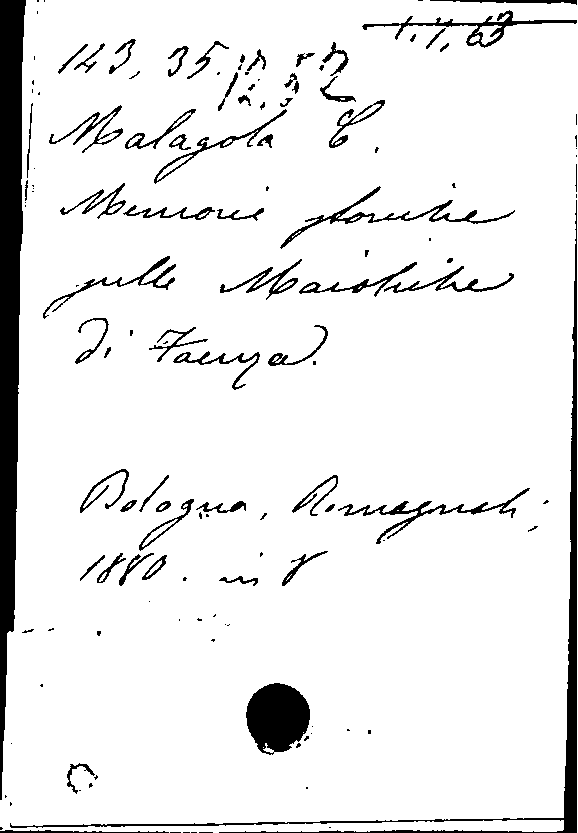 1.7.63
143, 35. 12.52
Malagola C.
Memorie storiche
sulle Maioliche
di Faenza.
Bologna, Romagnoli,
1880. in 8